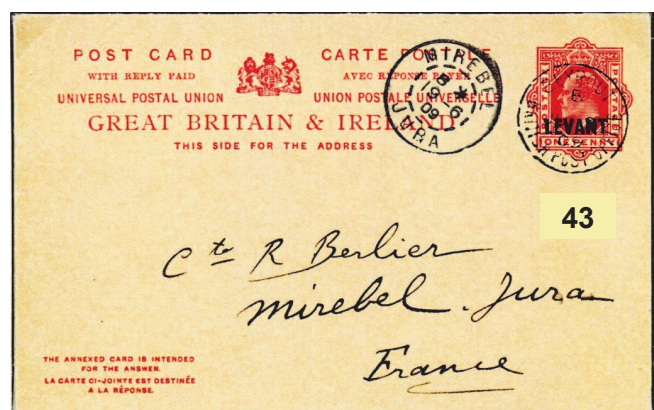 POST CARD
WITH REPLY PAID
UNIVERSAL POSTAL UNION
CARTE POSTALE
AVEC REPONSE PAYEE
UNION POSTALE UNIVERSELLE
GREAT BRITAIN & IRELAND
THIS SIDE FOR THE ADDRESS
MIREBEL
6
09
JURA
LEVANT
ONE PENNY
43
Cte R Berlier
Mirebel. Jura
France
THE ANNEXED CARD IS INTENDED
FOR THE ANSWER.
LA CARTE CI-JOINTE EST DESTINÉE
A LA RÉPONSE.